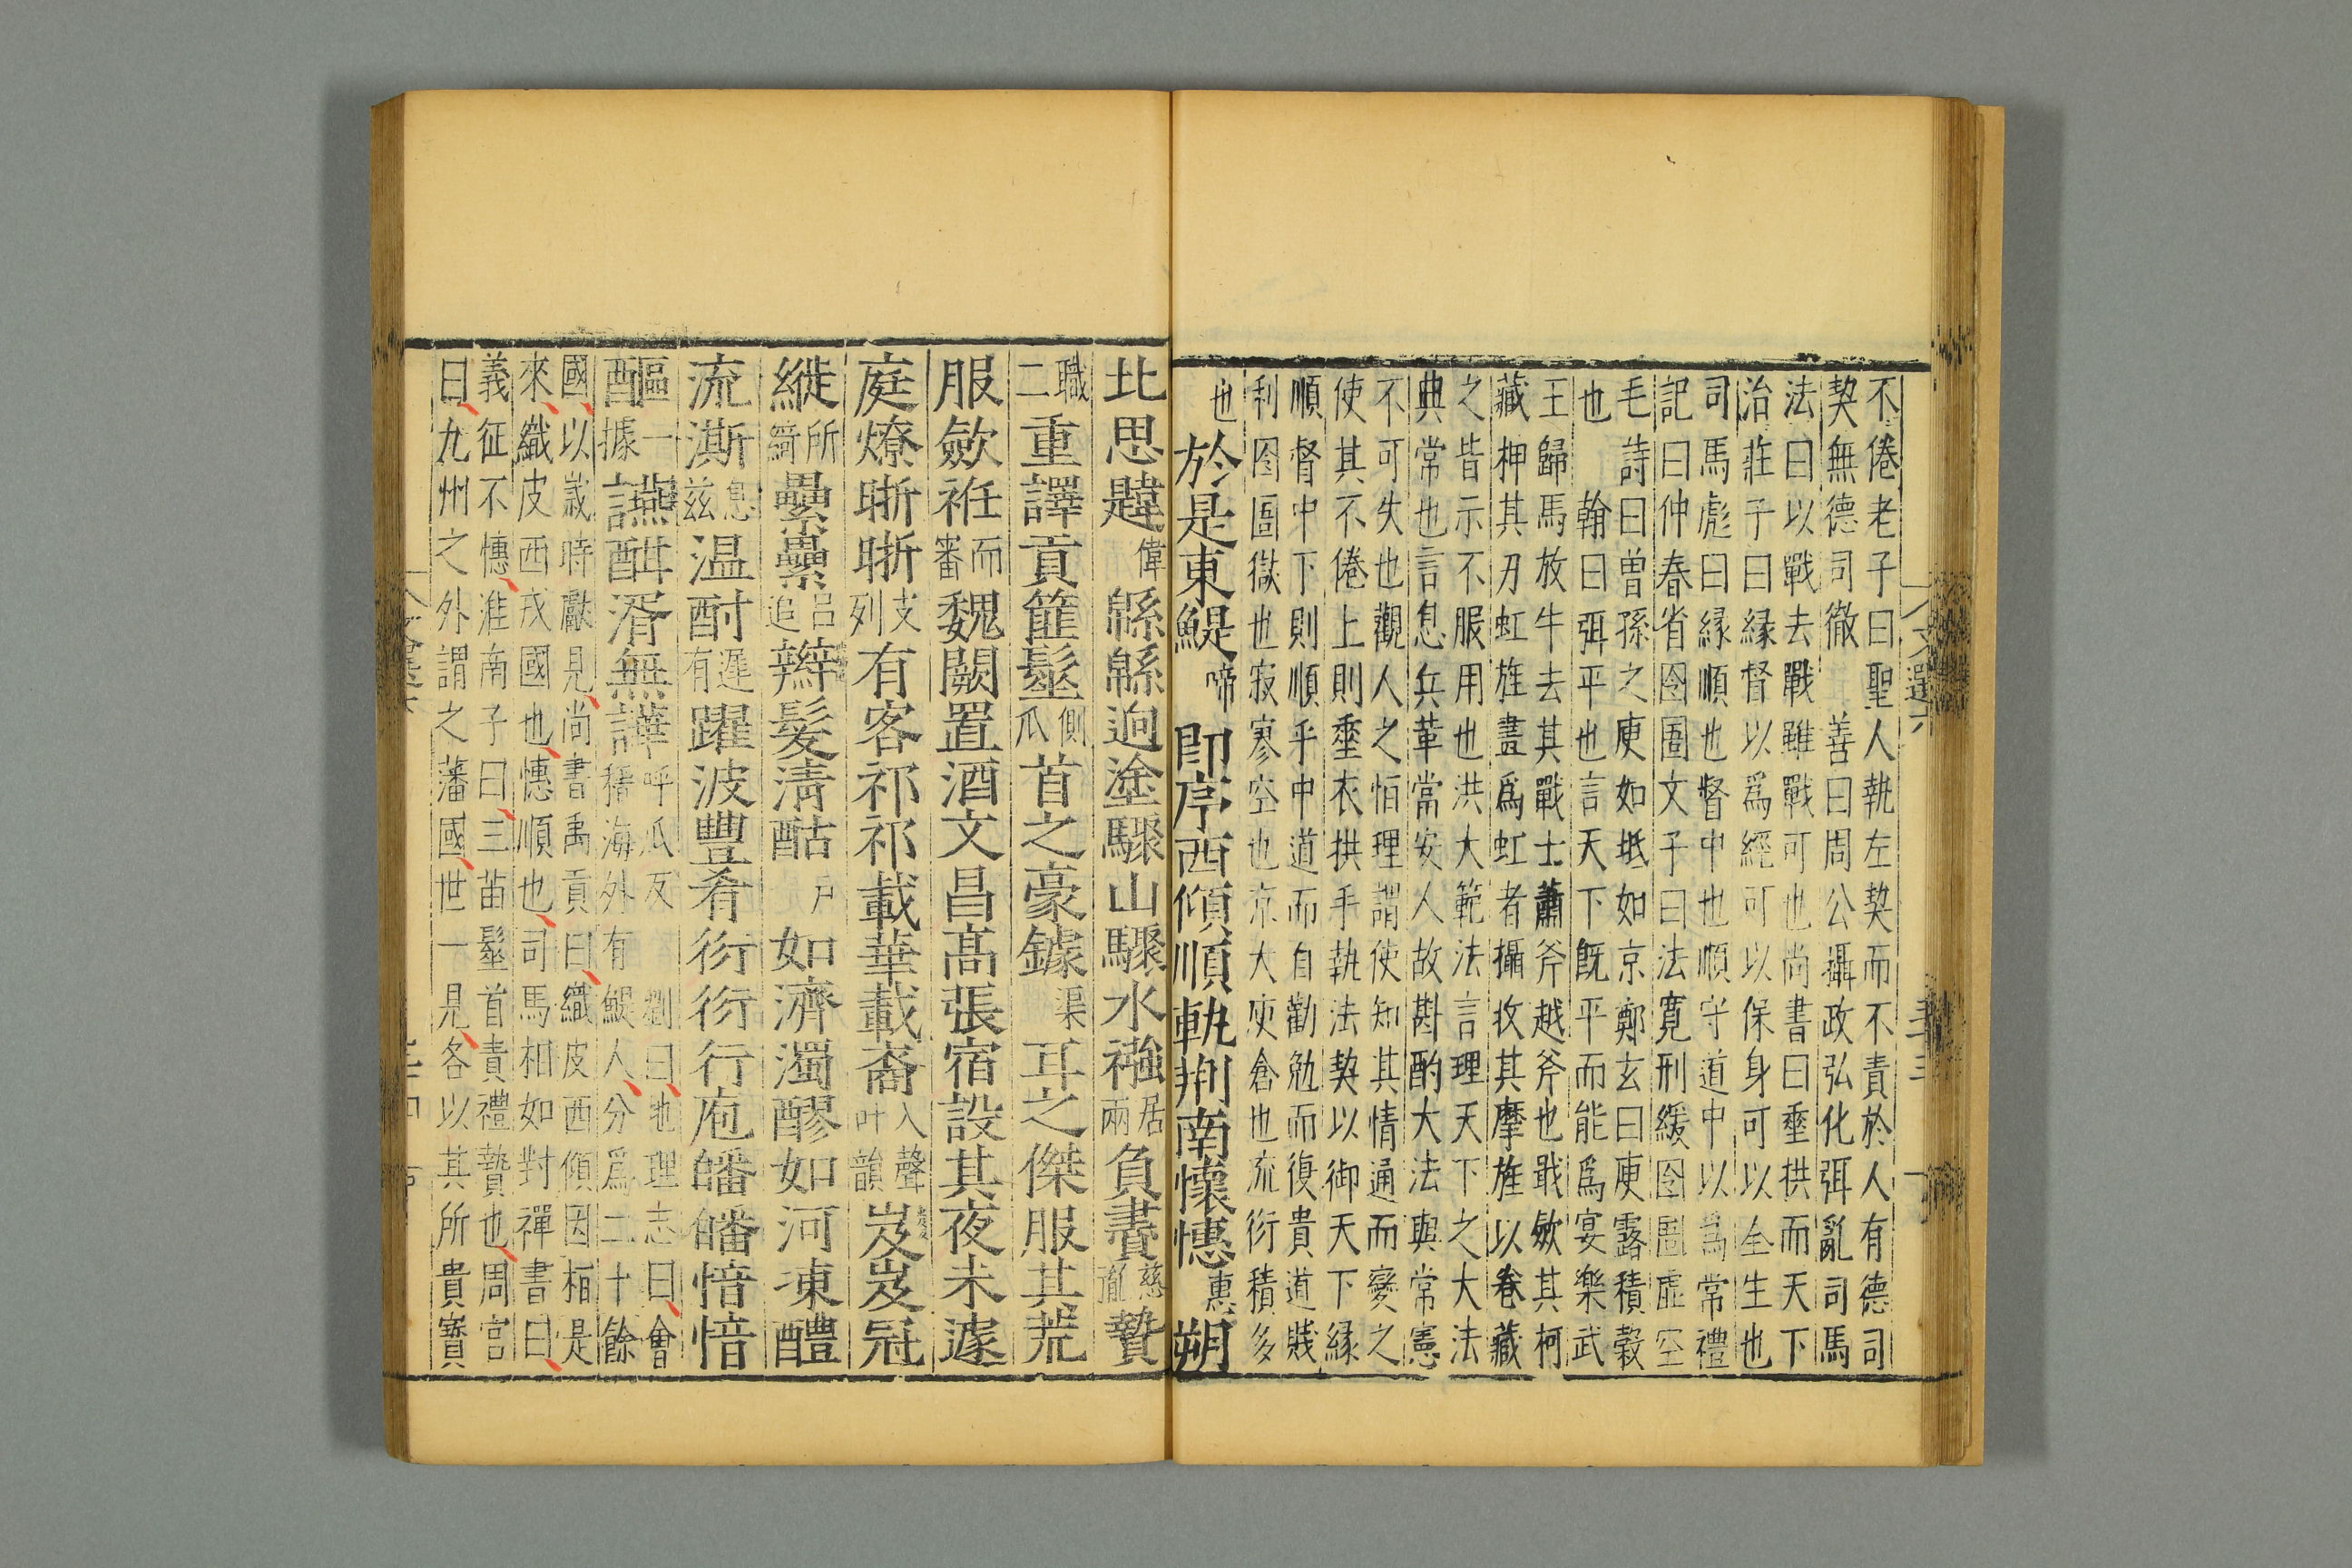 不倦老子曰聖人執左契而不責於人有德司
契無德司徹 善曰周公攝政弘化弭亂司馬
法曰以戰去戰雖戰可也尚書曰垂拱而天下
治莊子曰緣督以爲經可以保身可以全生也
司馬彪曰緣順也督中也順守道中以爲常禮
記曰仲春省囹圄文子曰法寬刑緩囹圄虛空
毛詩曰曾孫之庾如坻如京鄭玄曰庾露積穀
也 翰曰弭平也言天下既平而能爲宴樂武
王歸馬放牛去其戰士蕭斧越斧也戢斂其柯
藏柙其刃虹旌畫爲虹者攝收其摩旌以卷藏
之皆示不服用也洪大範法言理天下之大法
典常也言息兵革常安人故斟酌大法與常憲
不可失也觀人之恒理謂使知其情通而變之
使其不倦上則垂衣拱手執法契以御天下緣
順督中下則順乎中道而自勸勉而復貴道賤
利囹圄獄也寂寥空也京大庾倉也流衍積多
也 於是東鯷啼即序西傾順軌荆南懷憓惠朔
北思韙偉緜緜逈塗驟山驟水襁居兩負賮慈胤贄
職二重譯貢篚髽側瓜首之豪鐻渠耳之傑服其荒
服斂衽而審魏闕置酒文昌高張宿設其夜未遽
庭燎晣晣支列有客祁祁載華載裔入聲叶韻岌岌冠
縰所綺纍纍呂追辮髮清酤户如濟濁醪如河凍醴
流澌息兹温酎遲有躍波豐肴衍衍行庖皤皤愔愔
醧區據讌酣湑無譁呼瓜反 劉曰地理志曰會
稽海外有鯷人分爲二十餘
國以歲時獻見尚書禹貢曰織皮西傾因桓是
來織皮西戎國也憓順也司馬相如對禪書曰
義征不憓淮南子曰三苗髽首責禮贄也周官
曰九州之外謂之藩國世一見各以其所貴寳
文選六
三十三